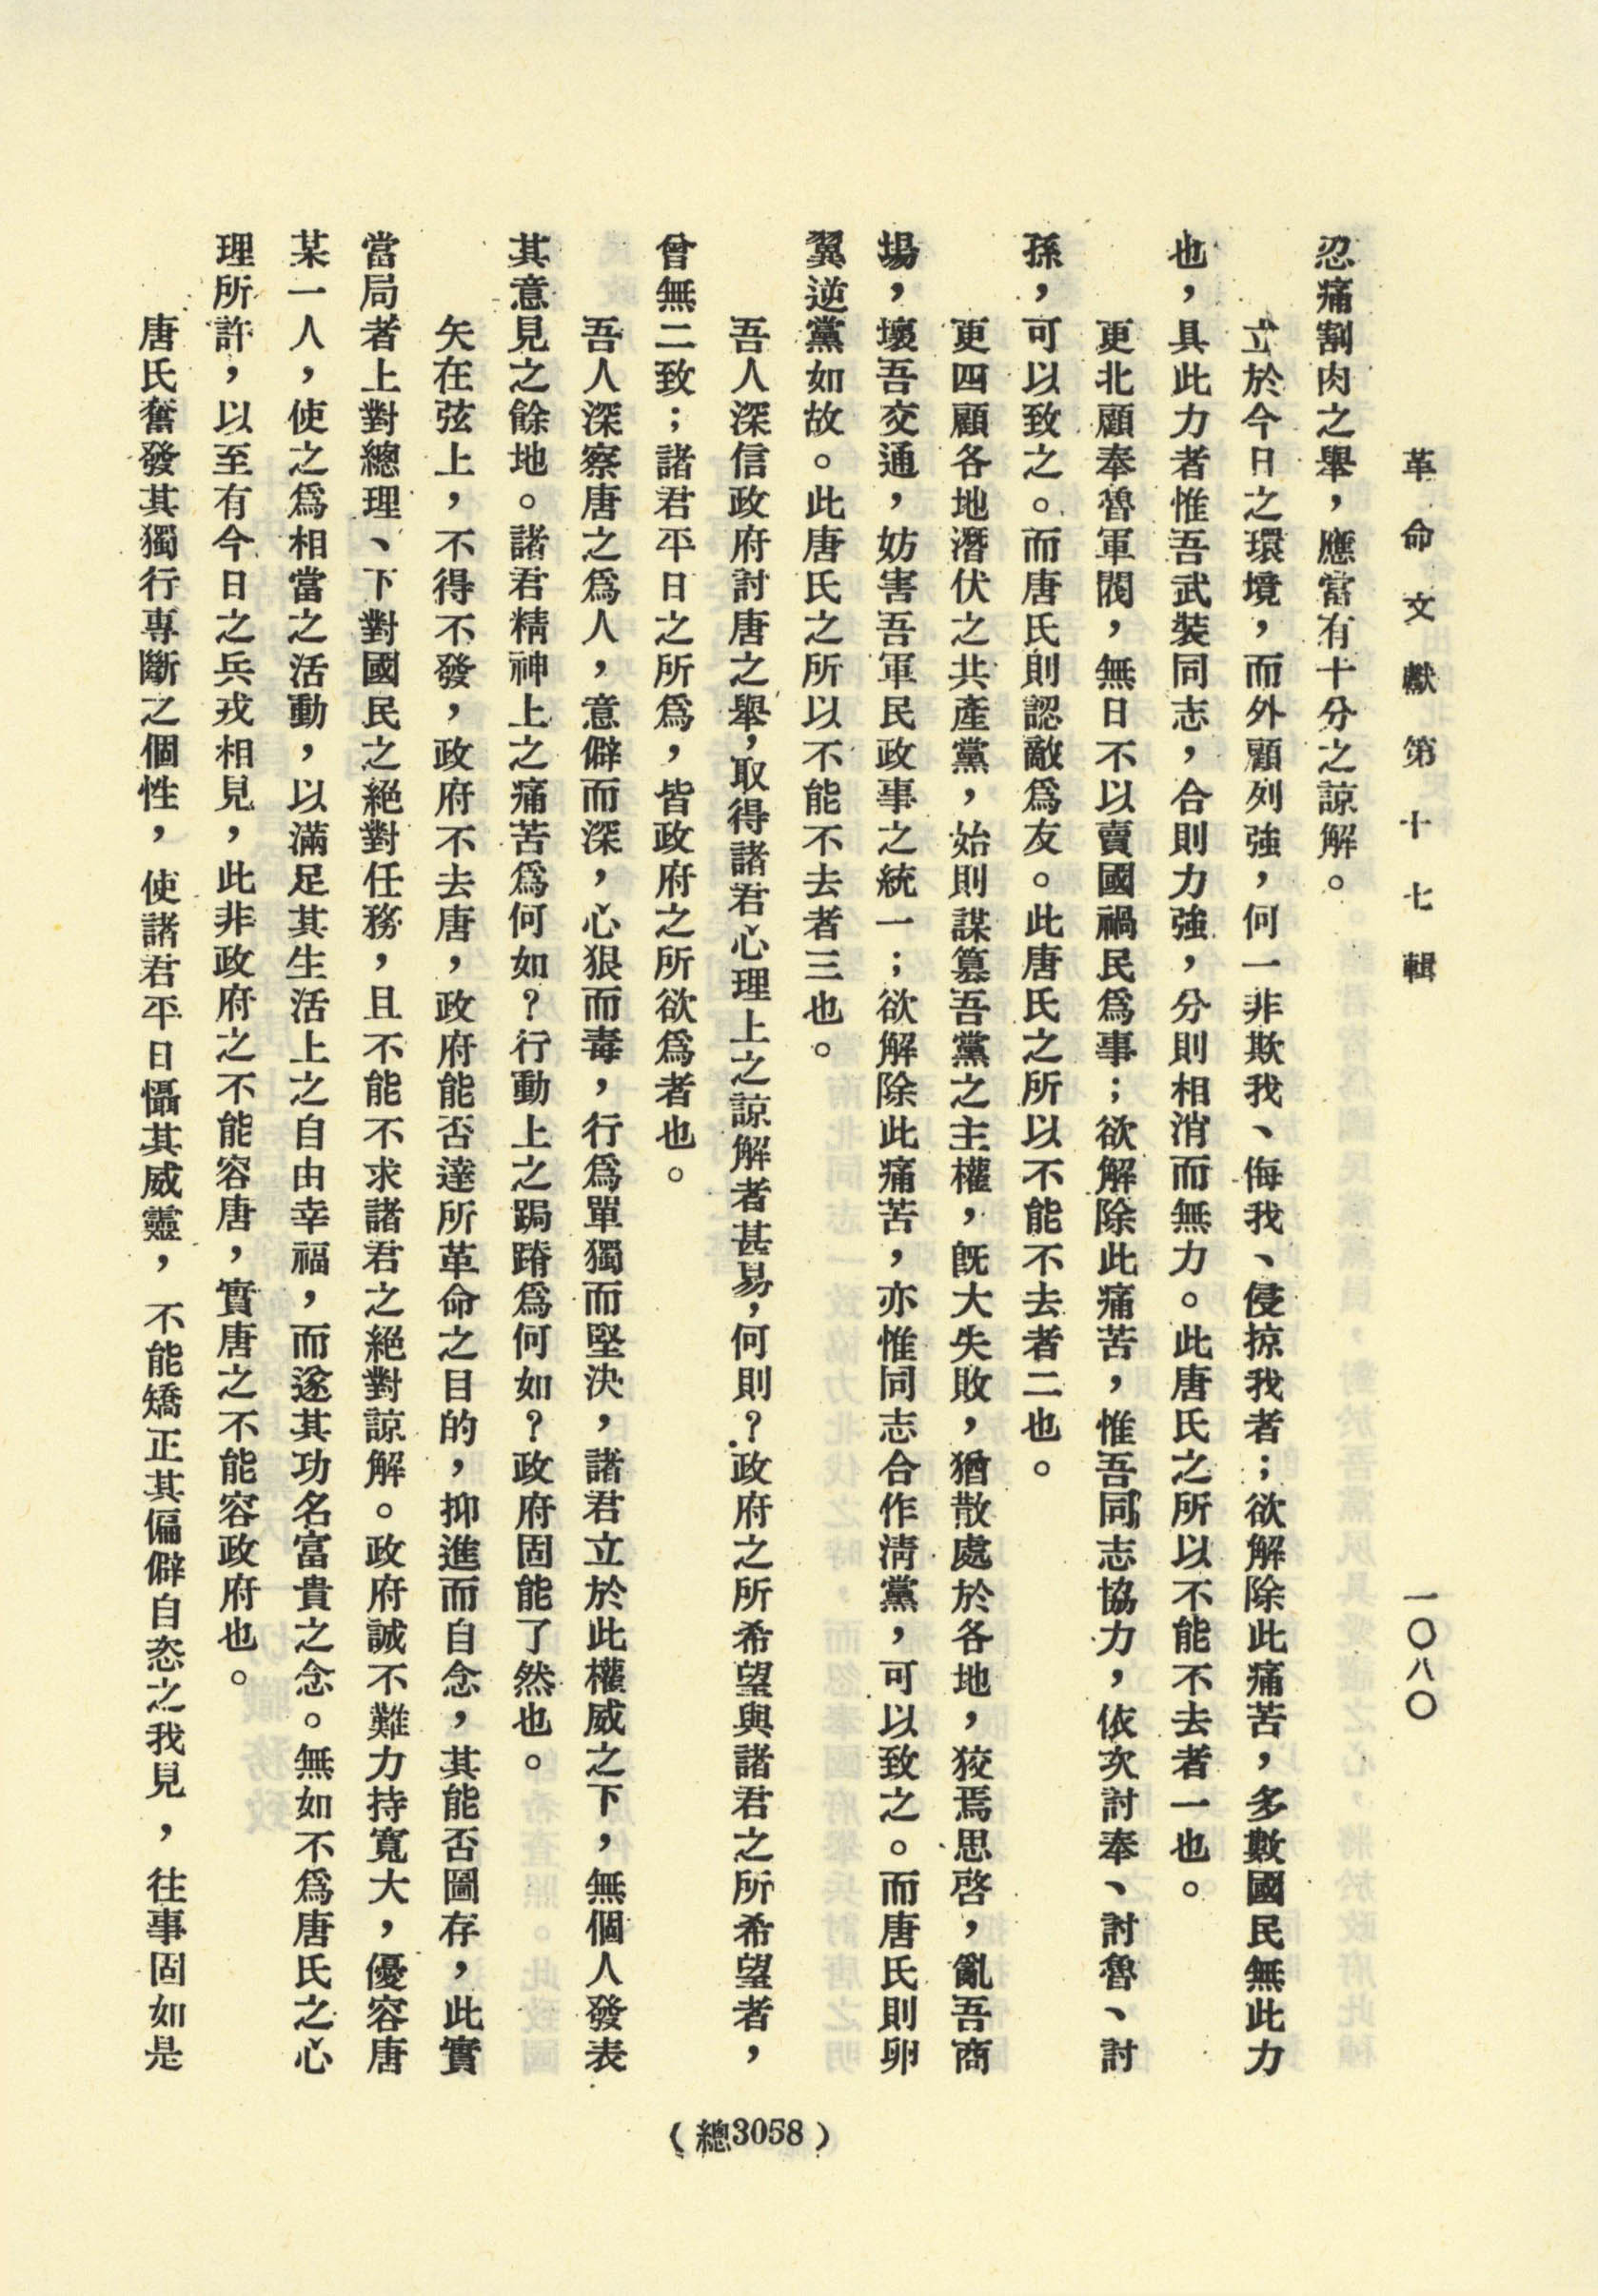 革命文獻第十七輯
一〇八〇
忍痛割肉之舉，應當有十分之諒解。
立於今日之環境，而外顧列強，何一非欺我、侮我、侵掠我者；欲解除此痛苦，多數國民無此力
也，具此力者惟吾武裝同志，合則力強，分則相消而無力。此唐氏之所以不能不去者一也。
更北顧奉魯軍閥，無日不以賣國禍民爲事；欲解除此痛苦，惟吾同志協力，依次討奉、討魯、討
孫，可以致之。而唐氏則認敵爲友。此唐氏之所以不能不去者二也。
更四顧各地潛伏之共產黨，始則謀篡吾黨之主權，既大失敗，猶散處於各地，狡焉思啓，亂吾商
場，壞吾交通，妨害吾軍民政事之統一；欲解除此痛苦，亦惟同志合作清黨，可以致之。而唐氏則卵
翼逆黨如故。此唐氏之所以不能不去者三也。
吾人深信政府討唐之舉，取得諸君心理上之諒解者甚易，何則？政府之所希望與諸君之所希望者，
曾無二致；諸君平日之所爲，皆政府之所欲爲者也。
吾人深察唐之爲人，意僻而深，心狠而毒，行爲單獨而堅決，諸君立於此權威之下，無個人發表
其意見之餘地。諸君精神上之痛苦爲何如？行動上之跼蹐爲何如？政府固能了然也。
矢在弦上，不得不發，政府不去唐，政府能否達所革命之目的，抑進而自念，其能否圖存，此實
當局者上對總理、下對國民之絕對任務，且不能不求諸君之絕對諒解。政府誠不難力持寬大，優容唐
某一人，使之爲相當之活動，以滿足其生活上之自由幸福，而遂其功名富貴之念。無如不爲唐氏之心
理所許，以至有今日之兵戎相見，此非政府之不能容唐，實唐之不能容政府也。
唐氏奮發其獨行專斷之個性，使諸君平日懾其威靈，不能矯正其偏僻自恣之我見，往事固如是
（總3058）